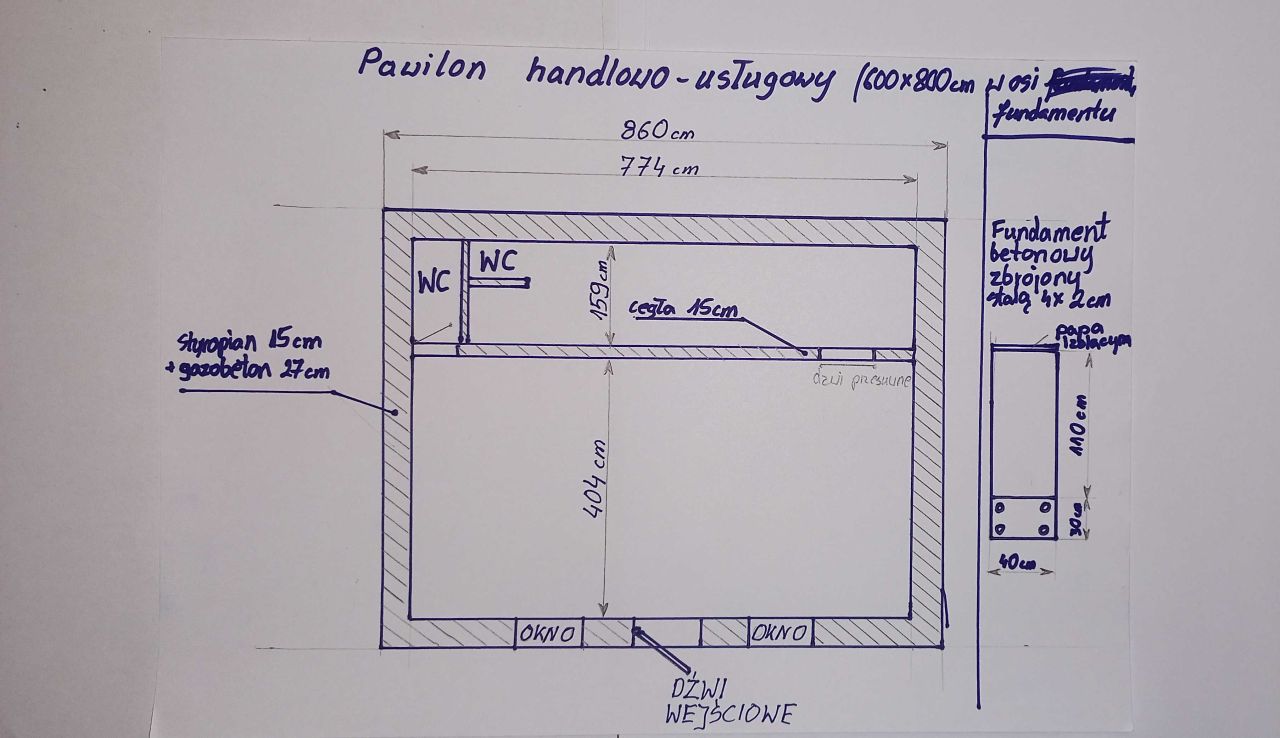 Pawilon handlowo-usługowy (600x800cm w osi
fundamentu
860cm
774 cm
WC
WC
159cm
cegła 15cm
styropian 15cm
+ gazobeton 27cm
dzwi przesuwne
404 cm
OKNO
OKNO
DŹWI
WEJŚCIOWE
Fundament
betonowy
zbrojony
stalą 4x 2cm
papa
110cm
30cm
40cm